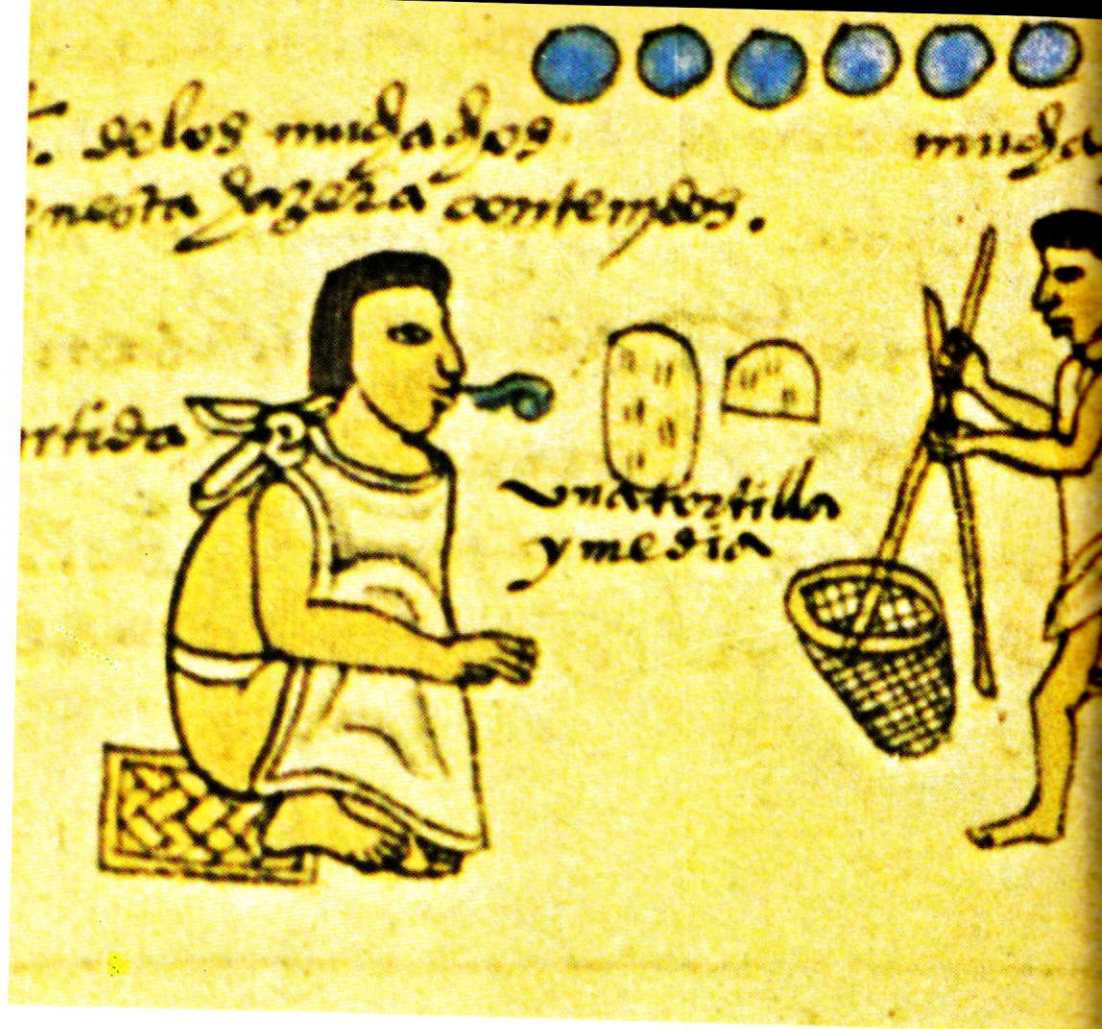 de los muchachos
mucha
enesta hazera contenidos.
rtida
vna tortilla
y media